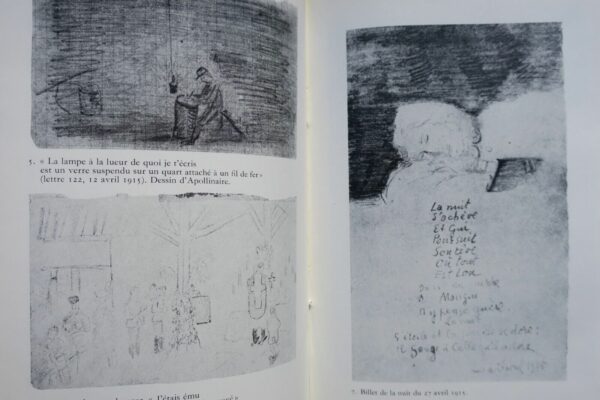 5. « La lampe à la lueur de quoi je t'écris
est un verre suspendu sur un quart attaché à un fil de fer »
(lettre 122, 12 avril 1915). Dessin d'Apollinaire.
« J'étais ému
La nuit
S'achève
Et Gui
Poursuit
Son rêve
Où tout
Est Lou
N'y pense guère
La nuit
S'étoile et la paille se dore
Il songe à Celle qu'il adore
7. Billet de la nuit du 27 avril 1915.